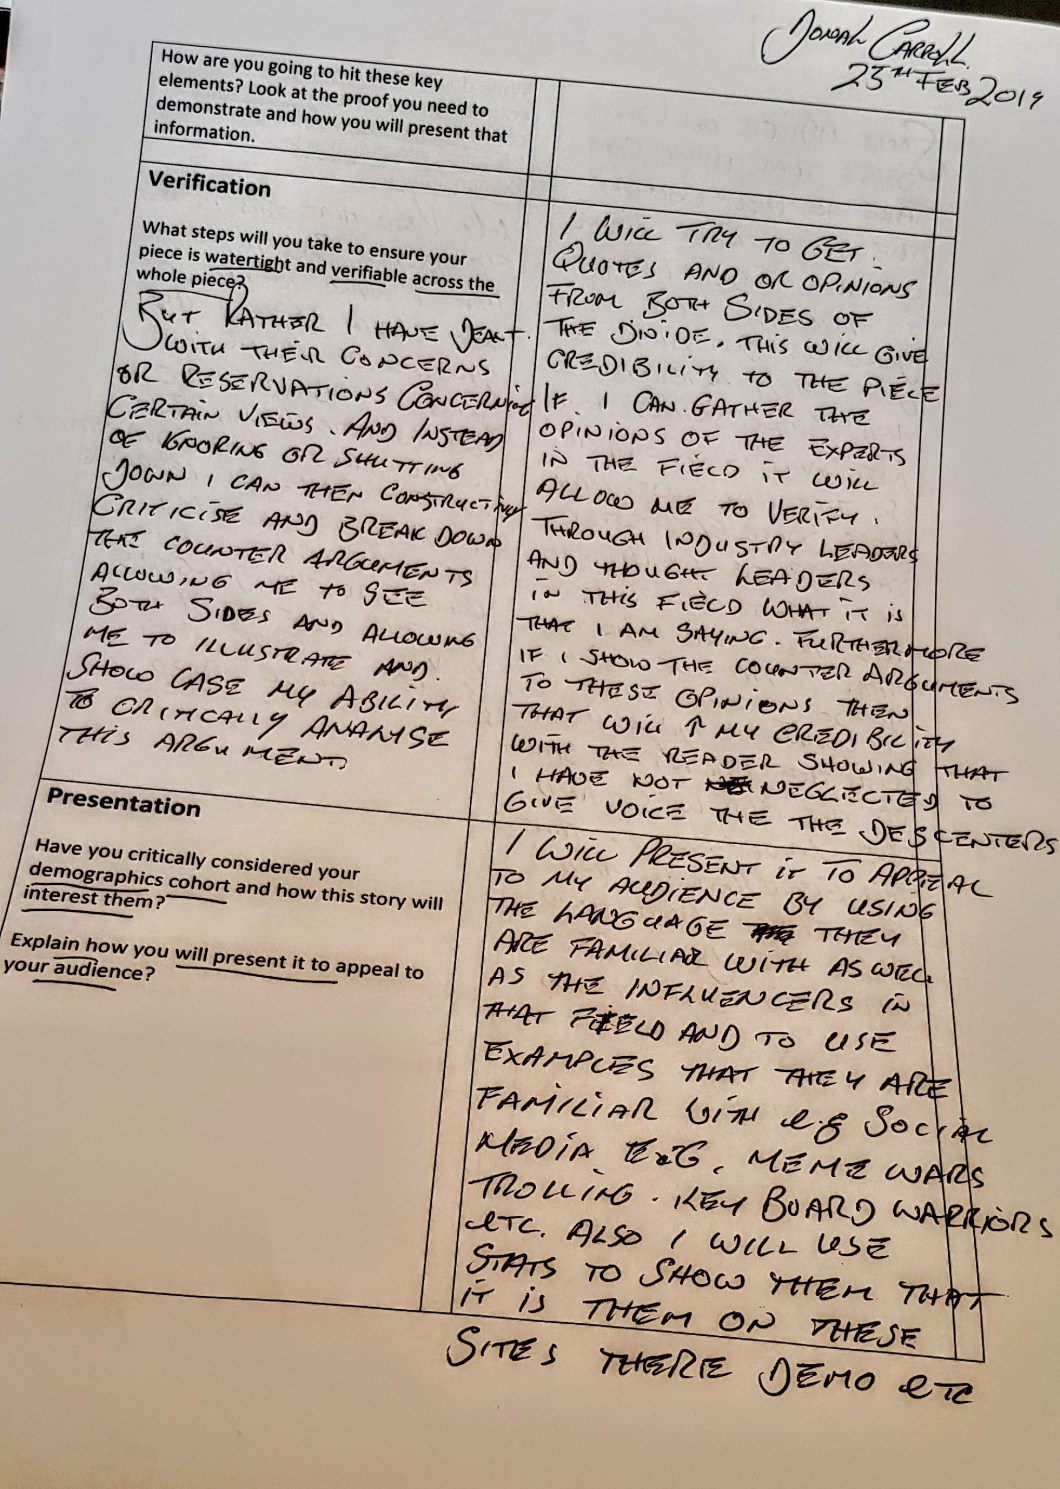 Donal Carroll.
25TH FEB 2019
How are you going to hit these key
elements? Look at the proof you need to
demonstrate and how you will present that
information.
Verification
What steps will you take to ensure your
piece is watertight and verifiable across the
whole piece?
I WILL TRY TO GET.
QUOTES AND OR OPINIONS
FROM BOTH SIDES OF
THE DIVIDE. THIS WILL GIVE
CREDIBILITY TO THE PIECE
IF I CAN GATHER THE
OPINIONS OF THE EXPERTS
IN THE FIELD IT WILL
ALLOW ME TO VERIFY.
THROUGH INDUSTRY LEADERS
AND THOUGHT LEADERS
IN THIS FIELD WHAT IT IS
THAT I AM SAYING. FURTHERMORE
IF I SHOW THE COUNTER ARGUMENTS
TO THESE OPINIONS THEN
THAT WILL ↑ MY CREDIBILITY
WITH THE READER SHOWING THAT
I HAVE NOT NEGLECTED TO
GIVE VOICE THE THE DESCENTERS
BUT RATHER I HAVE DEALT.
WITH THEIR CONCERNS
OR RESERVATIONS CONCERNING
CERTAIN VIEWS. AND INSTEAD
OF IGNORING OR SHUTTING
DOWN I CAN THEN CONSTRUCTIVLY
CRITICISE AND BREAK DOWN
THE COUNTER ARGUMENTS
ALLOWING ME TO SEE
BOTH SIDES AND ALLOWING
ME TO ILLUSTRATE AND.
SHOW CASE MY ABILITY
TO CRITICALLY ANANYSE
THIS ARGUMENT.
Presentation
Have you critically considered your
demographics cohort and how this story will
interest them?
Explain how you will present it to appeal to
your audience?
I WILL PRESENT IT TO APPEAL
TO MY AUDIENCE BY USING
THE LANGUAGE THEY
ARE FAMILIAR WITH AS WELL
AS THE INFLUENCERS IN
THAT FIELD AND TO USE
EXAMPLES THAT THEY ARE
FAMILIAR WITH e.g SOCIAL
MEDIA E.G. MEME WARS
TROLLING. KEY BOARD WARRIORS
eTC. ALSO I WILL USE
STATS TO SHOW THEM THAT
IT IS THEM ON THESE
SITES THERE DEMO eTC